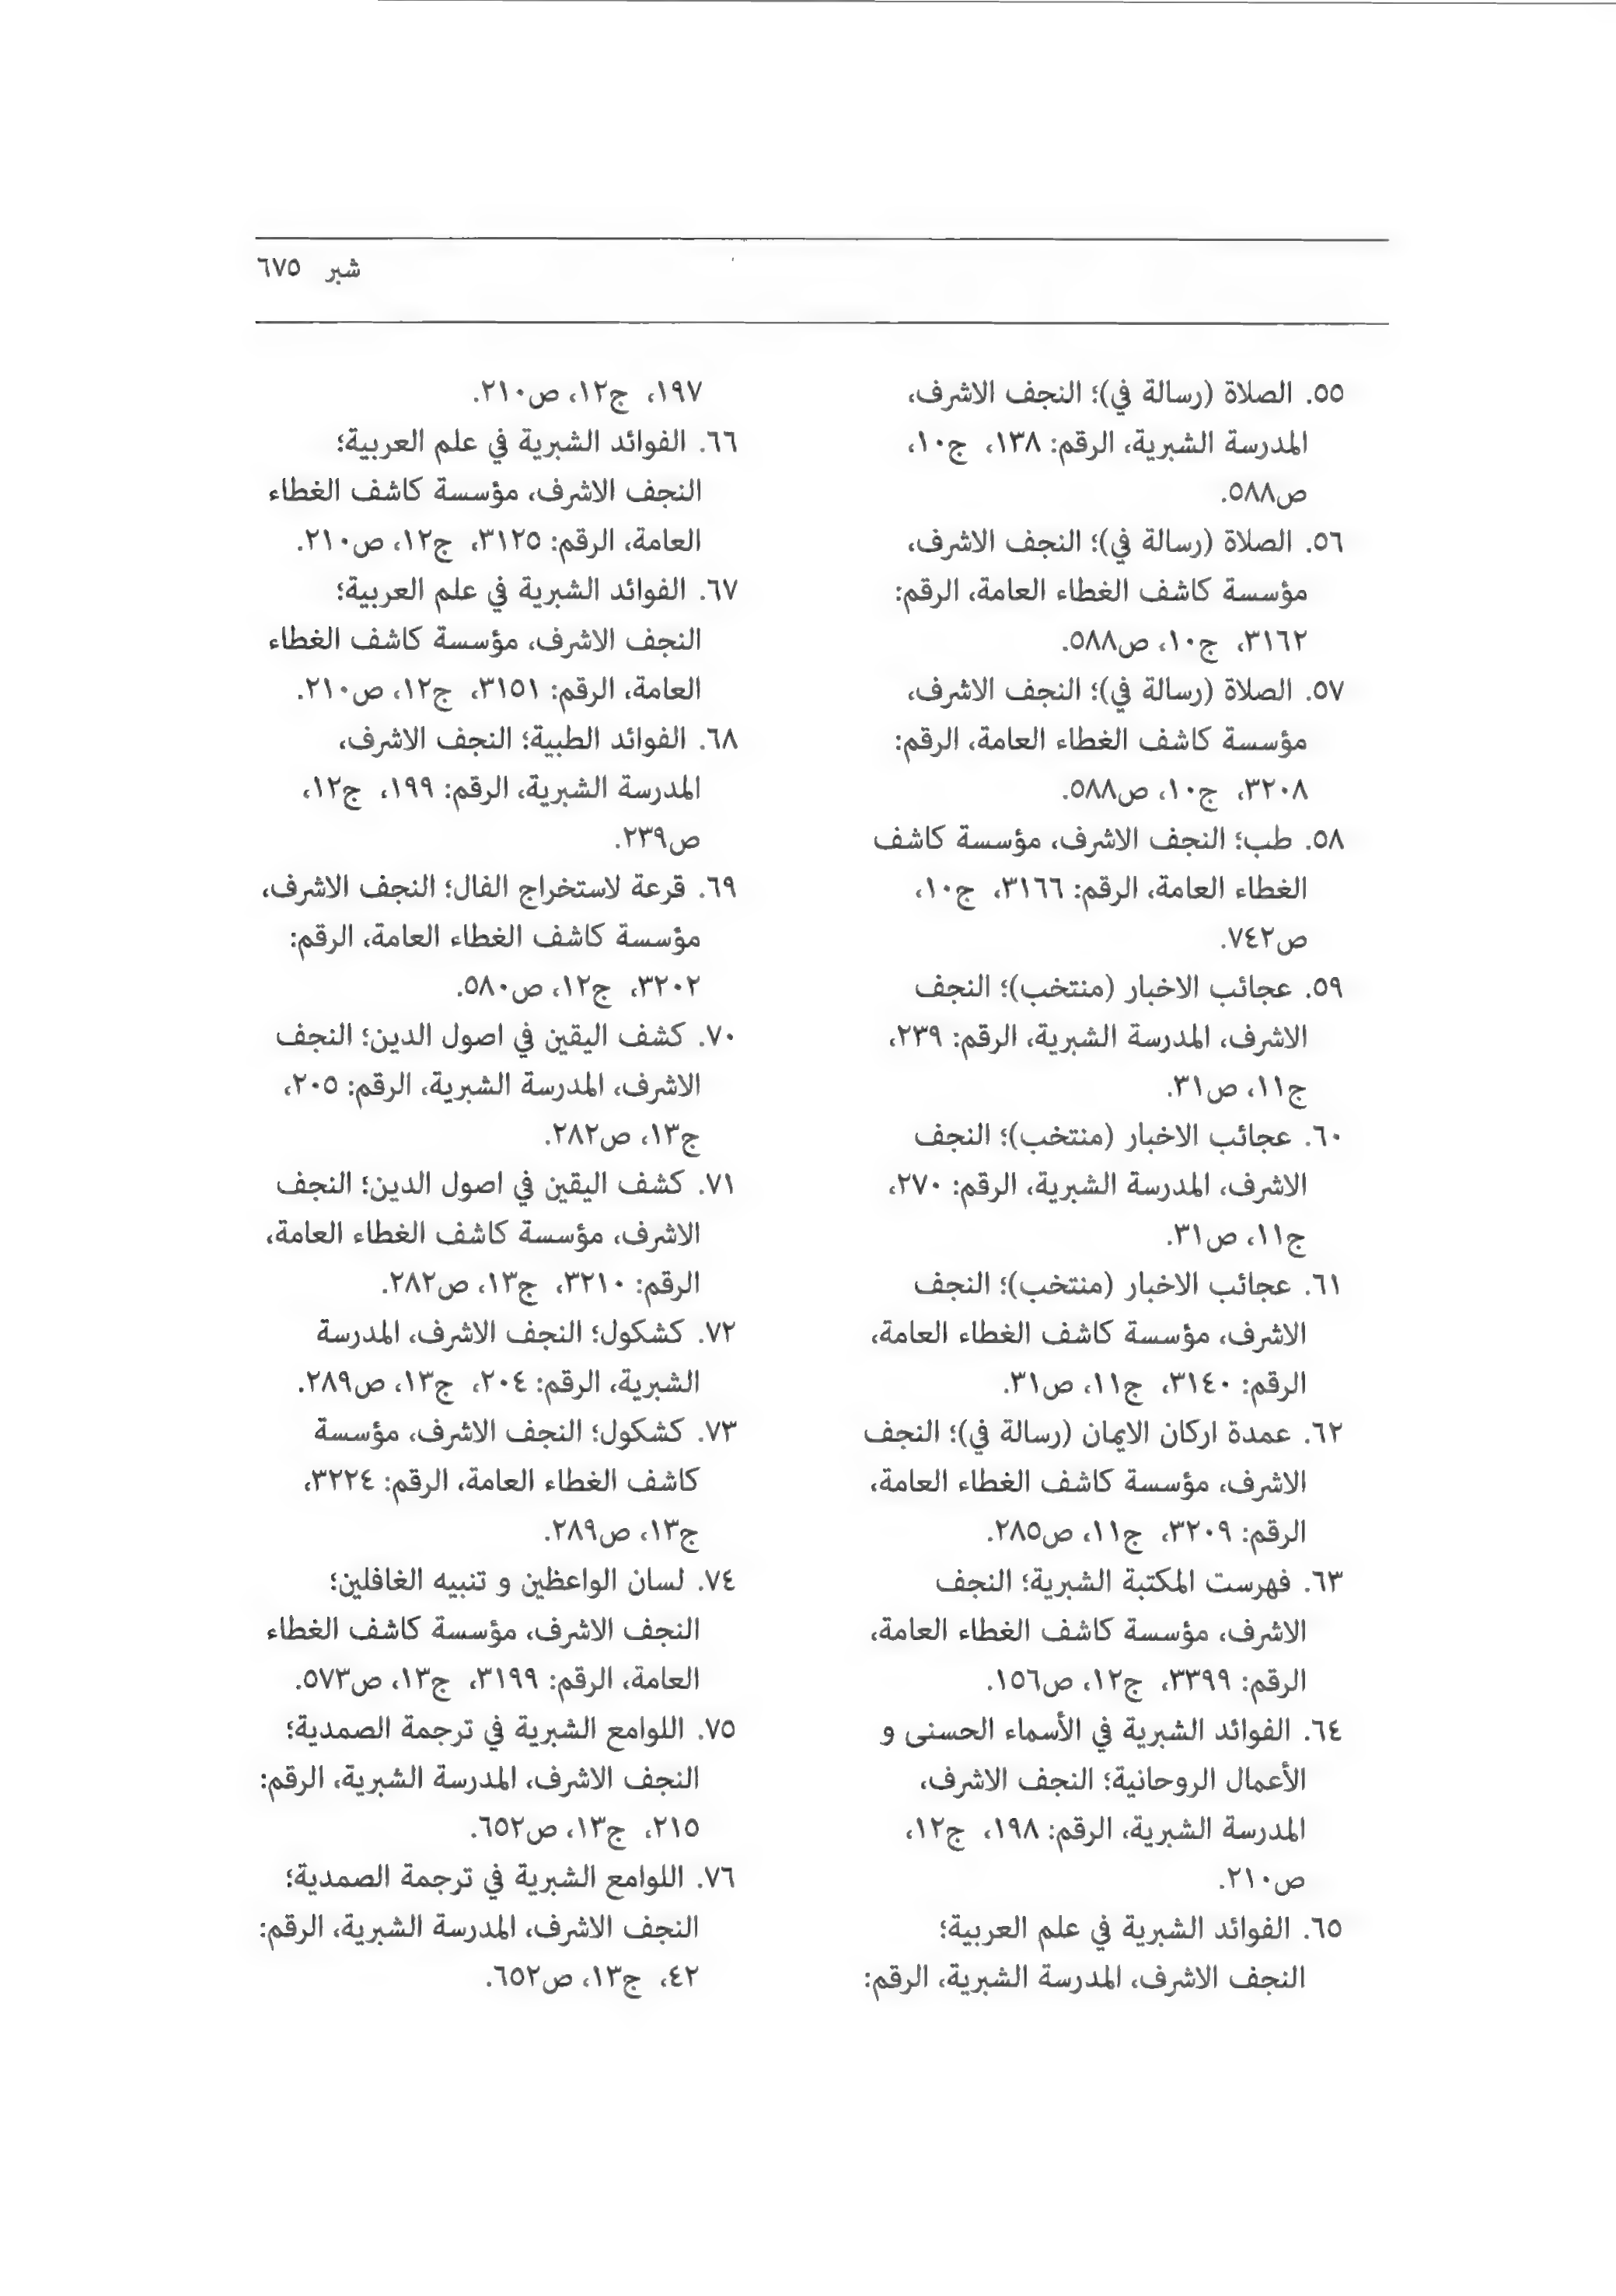 شبر ٦٧٥
٥٥. الصلاة (رسالة في)؛ النجف الاشرف،
المدرسة الشبرية، الرقم: ١٣٨، ج١٠،
ص٥٨٨.
٥٦. الصلاة (رسالة في)؛ النجف الاشرف،
مؤسسة كاشف الغطاء العامة، الرقم:
٣١٦٢، ج١٠، ص٥٨٨.
٥٧. الصلاة (رسالة في)؛ النجف الاشرف،
مؤسسة كاشف الغطاء العامة، الرقم:
٣٢٠٨، ج١٠، ص٥٨٨.
٥٨. طب؛ النجف الاشرف، مؤسسة كاشف
الغطاء العامة، الرقم: ٣١٦٦، ج١٠،
ص٧٤٢.
٥٩. عجائب الاخبار (منتخب)؛ النجف
الاشرف، المدرسة الشبرية، الرقم: ٢٣٩،
ج١١، ص٣١.
٦٠. عجائب الاخبار (منتخب)؛ النجف
الاشرف، المدرسة الشبرية، الرقم: ٢٧٠،
ج١١، ص٣١.
٦١. عجائب الاخبار (منتخب)؛ النجف
الاشرف، مؤسسة كاشف الغطاء العامة،
الرقم: ٣١٤٠، ج١١، ص٣١.
٦٢. عمدة اركان الايمان (رسالة في)؛ النجف
الاشرف، مؤسسة كاشف الغطاء العامة،
الرقم: ٣٢٠٩، ج١١، ص٢٨٥.
٦٣. فهرست المكتبة الشبرية؛ النجف
الاشرف، مؤسسة كاشف الغطاء العامة،
الرقم: ٣٣٩٩، ج١٢، ص١٥٦.
٦٤. الفوائد الشبرية في الأسماء الحسنى و
الأعمال الروحانية؛ النجف الاشرف،
المدرسة الشبرية، الرقم: ١٩٨، ج١٢،
ص٢١٠.
٦٥. الفوائد الشبرية في علم العربية؛
النجف الاشرف، المدرسة الشبرية، الرقم:
١٩٧، ج١٢، ص٢١٠.
٦٦. الفوائد الشبرية في علم العربية؛
النجف الاشرف، مؤسسة كاشف الغطاء
العامة، الرقم: ٣١٢٥، ج١٢، ص٢١٠.
٦٧. الفوائد الشبرية في علم العربية؛
النجف الاشرف، مؤسسة كاشف الغطاء
العامة، الرقم: ٣١٥١، ج١٢، ص٢١٠.
٦٨. الفوائد الطبية؛ النجف الاشرف،
المدرسة الشبرية، الرقم: ١٩٩، ج١٢،
ص٢٣٩.
٦٩. قرعة لاستخراج الفال؛ النجف الاشرف،
مؤسسة كاشف الغطاء العامة، الرقم:
٣٢٠٢، ج١٢، ص٥٨٠.
٧٠. كشف اليقين في اصول الدين؛ النجف
الاشرف، المدرسة الشبرية، الرقم: ٢٠٥،
ج١٣، ص٢٨٢.
٧١. كشف اليقين في اصول الدين؛ النجف
الاشرف، مؤسسة كاشف الغطاء العامة،
الرقم: ٣٢١٠، ج١٣، ص٢٨٢.
٧٢. كشكول؛ النجف الاشرف، المدرسة
الشبرية، الرقم: ٢٠٤، ج١٣، ص٢٨٩.
٧٣. كشكول؛ النجف الاشرف، مؤسسة
كاشف الغطاء العامة، الرقم: ٣٢٢٤،
ج١٣، ص٢٨٩.
٧٤. لسان الواعظين و تنبيه الغافلين؛
النجف الاشرف، مؤسسة كاشف الغطاء
العامة، الرقم: ٣١٩٩، ج١٣، ص٥٧٣.
٧٥. اللوامع الشبرية في ترجمة الصمدية؛
النجف الاشرف، المدرسة الشبرية، الرقم:
٢١٥، ج١٣، ص٦٥٢.
٧٦. اللوامع الشبرية في ترجمة الصمدية؛
النجف الاشرف، المدرسة الشبرية، الرقم:
٤٢، ج١٣، ص٦٥٢.